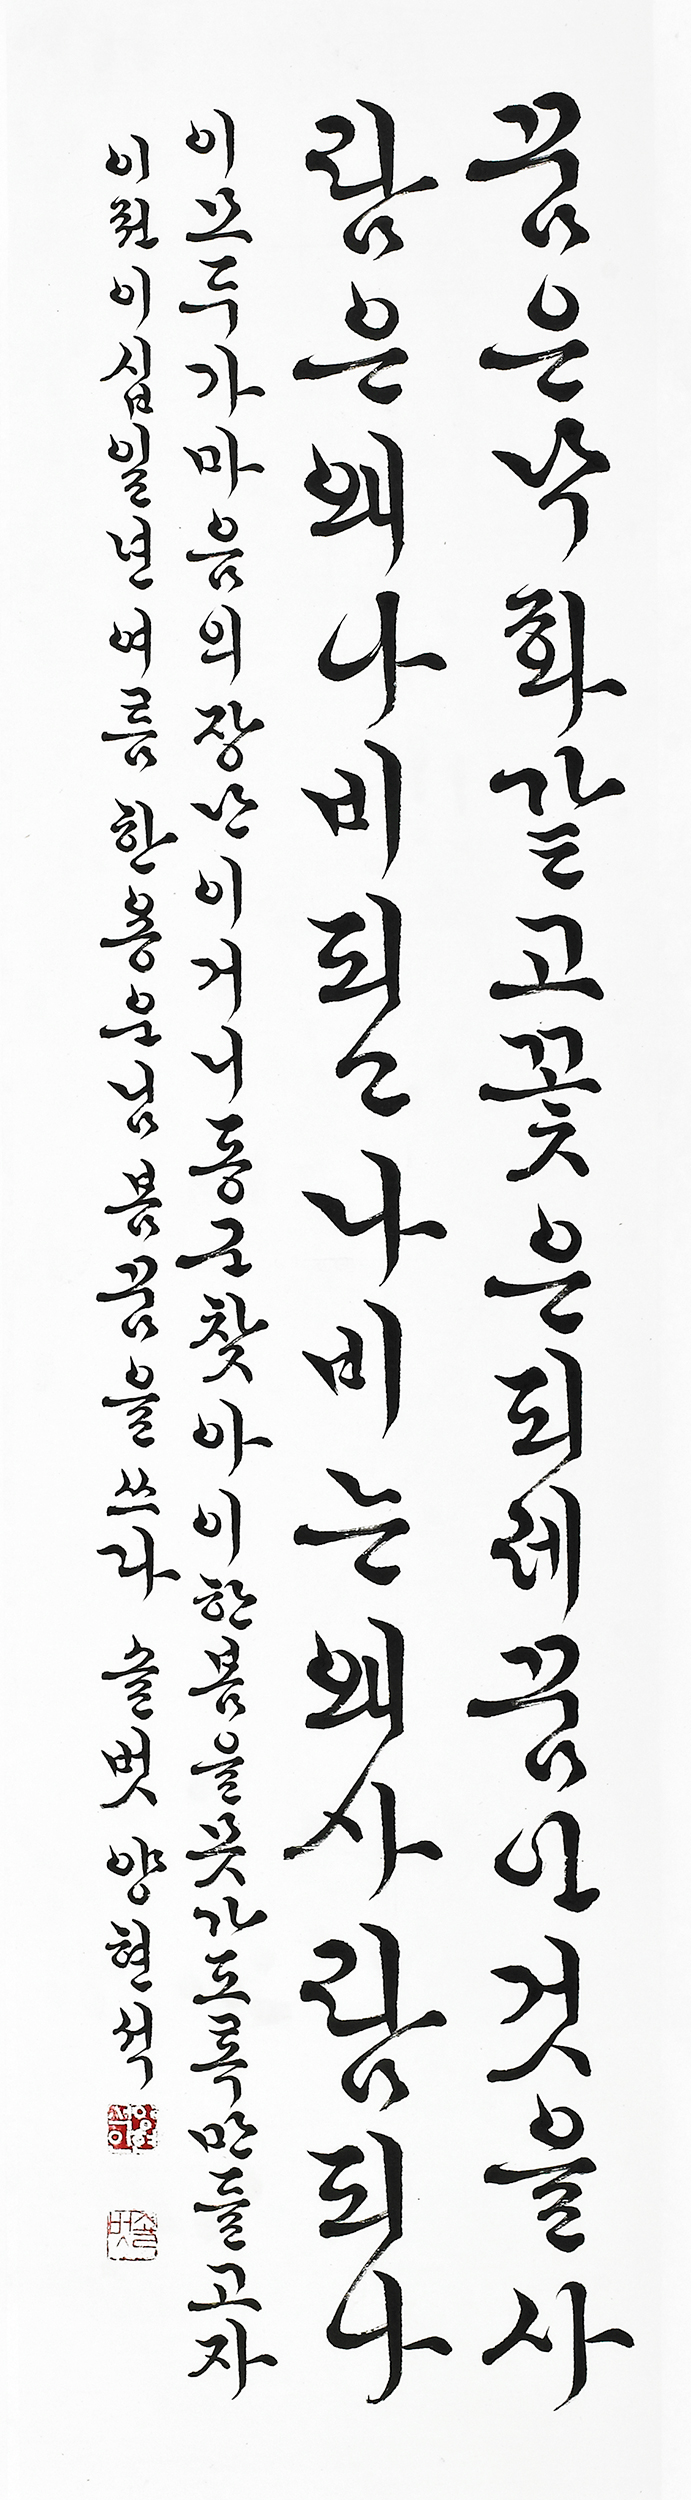 꿈은낙화같고꽃은되레꿈인것을사
람은왜나비되고나비는왜사람되나
이모두가마음의장난이거니동군찾아이한봄을못가도록만들고자
이천이십일년여름 한용운님봄꿈을쓰다 솔벗 양현석
솔벗